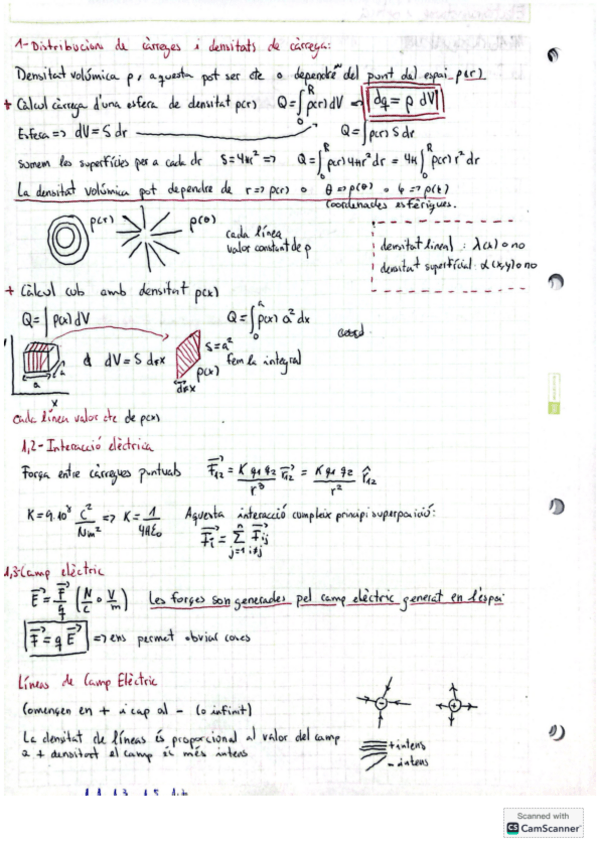 1-Distribucions de càrreges i densitats de càrrega:
Densitat volúmica ρ, aquesta pot ser cte o dependre del punt del espai ρ(r)
+ Càlcul càrrega d'una esfera de densitat ρ(r) Q=∫₀ᴿ ρ(r) dV ⇒ dq = ρ dV
Esfera => dV = S dr Q=∫ρ(r) S dr
Sumem les superfícies per a cada dr S=4πr² => Q=∫₀ᴿ ρ(r) 4πr² dr = 4π∫₀ᴿ ρ(r) r² dr
La densitat volúmica pot dependre de r => ρ(r) o θ => ρ(θ) o φ => ρ(φ)
Coordenades esfèriques.
ρ(r) ρ(θ)
cada línea
valor constant de ρ
densitat lineal : λ(x) o no
densitat superficial: α(x,y) o no
+ Càlcul cub amb densitat ρ(x)
Q=∫ρ(x) dV Q=∫₀ᵃ ρ(x) a² dx
dV = S dx S=a² ρ(x) fem la integral
a a x dx
Cada línea valor cte de ρ(x)
1,2-Interacció elèctrica
Força entre càrregues puntuals F⃗₁₂ = K q₁ q₂ / r³ r⃗₁₂ = K q₁ q₂ / r² r̂₁₂
K=9·10⁹ C²/Nm² => K = 1/4πε₀ Aquesta interacció compleix principi superposició:
F⃗ᵢ = Σ F⃗ᵢⱼ
j=1 i≠j
1,3-Camp elèctric
E⃗ = F⃗/q (N/C o V/m) Les forçes son generades pel camp elèctric generat en l'espai
F⃗ = q E⃗ => ens permet obviar coses
Líneas de Camp Elèctric
Comencen en + i cap al - (o infinit)
La densitat de líneas és proporcional al valor del camp
a + densitat el camp és més intens
- +
+ intens
- intens
Scanned with
CS CamScanner